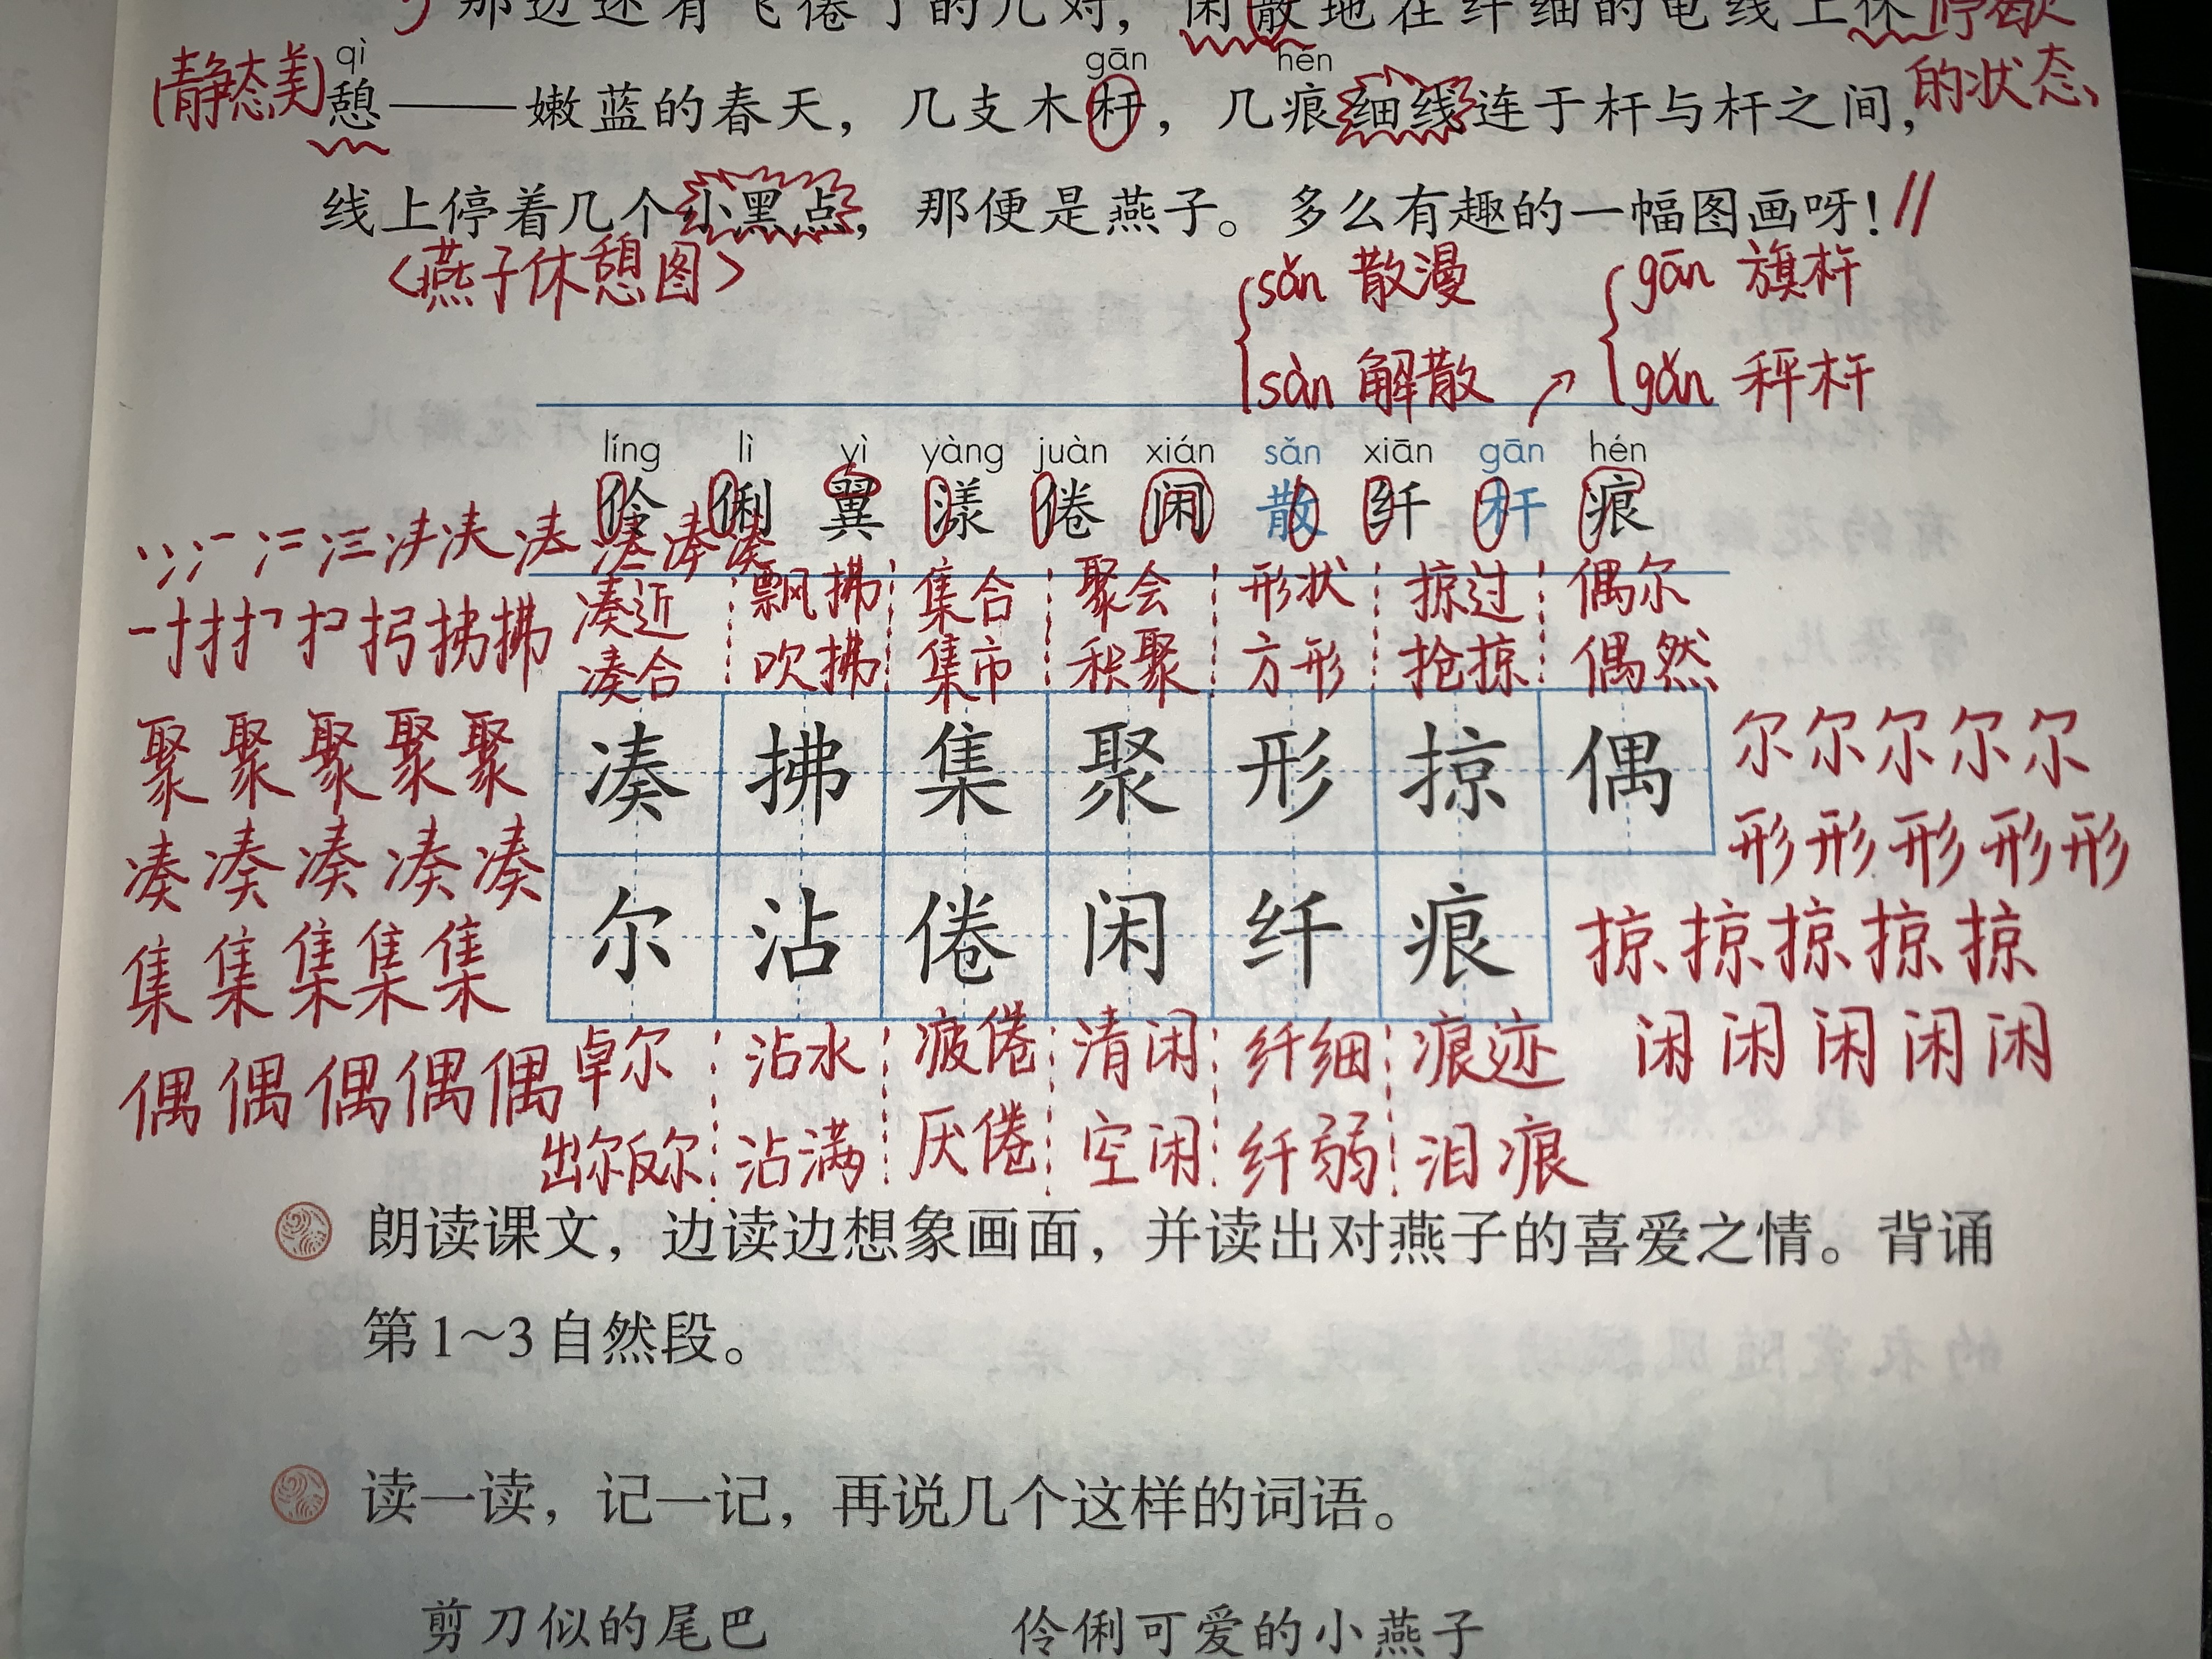 那边还有飞倦了的几对，闲散地在纤细的电线上休 停歇
(静态美) qì gān hén 的状态
憩——嫩蓝的春天，几支木杆，几痕细线连于杆与杆之间，
线上停着几个小黑点，那便是燕子。多么有趣的一幅图画呀！//
<燕子休憩图>
sǎn 散漫 gān 旗杆
sàn 解散 gǎn 秤杆
líng lì yì yàng juàn xián sǎn xiān gān hén
伶 俐 翼 漾 倦 闲 散 纤 杆 痕
凑近 飘拂 集合 聚会 形状 掠过 偶尔
凑合 吹拂 集市 积聚 方形 抢掠 偶然
聚 聚 聚 聚 聚 凑 拂 集 聚 形 掠 偶 尔 尔 尔 尔 尔
凑 凑 凑 凑 凑 形 形 形 形 形
集 集 集 集 集 尔 沾 倦 闲 纤 痕 掠 掠 掠 掠 掠
偶 偶 偶 偶 偶 卓尔 沾水 疲倦 清闲 纤细 痕迹 闲 闲 闲 闲 闲
出尔反尔 沾满 厌倦 空闲 纤弱 泪痕
朗读课文，边读边想象画面，并读出对燕子的喜爱之情。背诵
第1～3自然段。
读一读，记一记，再说几个这样的词语。
剪刀似的尾巴 伶俐可爱的小燕子